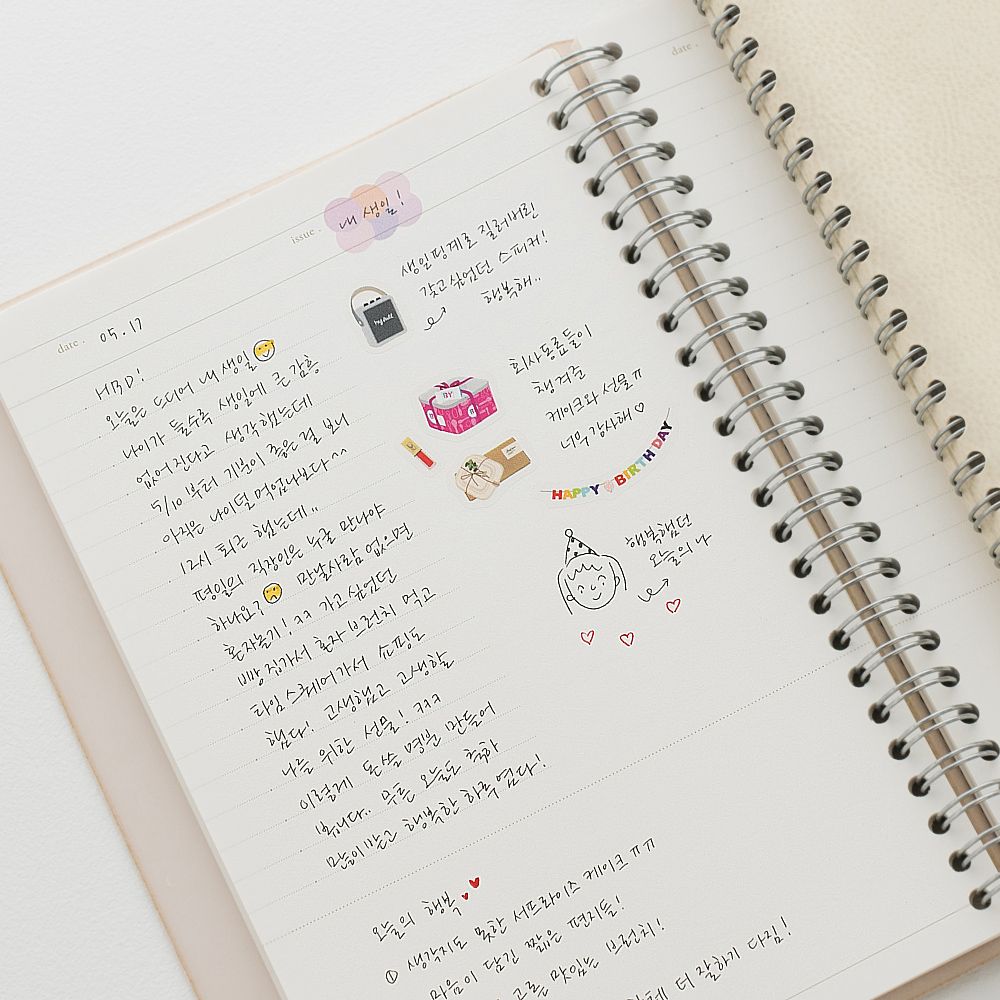 date.
issue. 내 생일!
date. 05.17
생일핑계로 질러버린
갖고싶었던 스피커!
행복해..
HBD!
오늘은 드디어 내 생일
나이가 들수록 생일에 큰 감흥
없어진다고 생각했는데
5/10 부터 기분이 좋은 걸 보니
아직은 나이 덜 먹었나보다^^
12시 퇴근 했는데..
평일의 직장인은 누굴 만나야
하나요? 만날사람 없으면
혼자놀기! ㅋㅋ 가고싶었던
빵집가서 혼자 브런치 먹고
타임스퀘어가서 쇼핑도
했다! 고생했고 고생할
나를 위한 선물! ㅋㅋㅋ
이렇게 돈쓸 명분 만들어
봅니다.. 무튼 오늘도 축하
많이받고 행복한 하루였다!
회사동료들이
챙겨준
케이크와 선물ㅠ
너무 감사해♡
BY
HAPPY BIRTHDAY
행복했던
오늘의 나
오늘의 행복
① 생각지도 못한 서프라이즈 케이크ㅠㅠ
마음이 담긴 짧은 편지들!
맛있는 브런치!
더 잘하기 다짐!